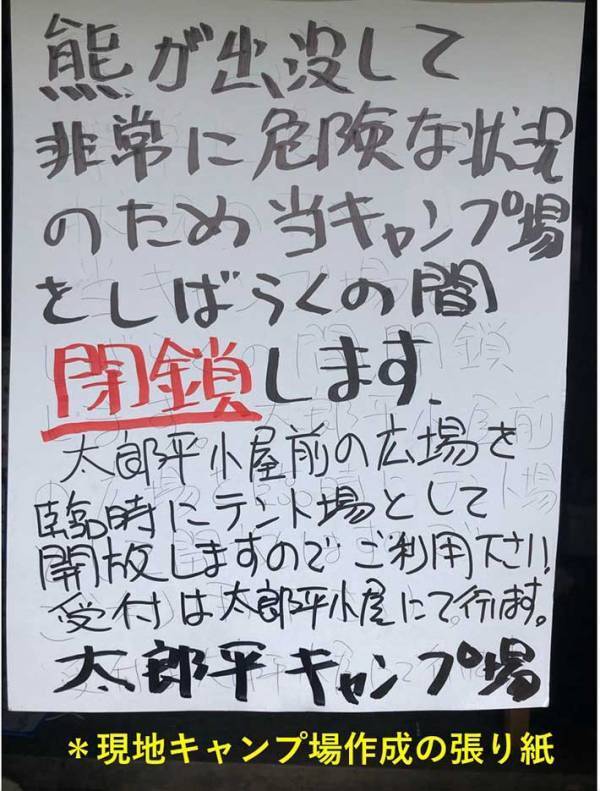 熊が出没して
非常に危険な状況
のため当キャンプ場
をしばらくの間
閉鎖します.
太郎平小屋前の広場を
臨時にテント場として
開放しますのでご利用下さい!
受付は太郎平小屋にて行います。
太郎平キャンプ場
＊現地キャンプ場作成の張り紙